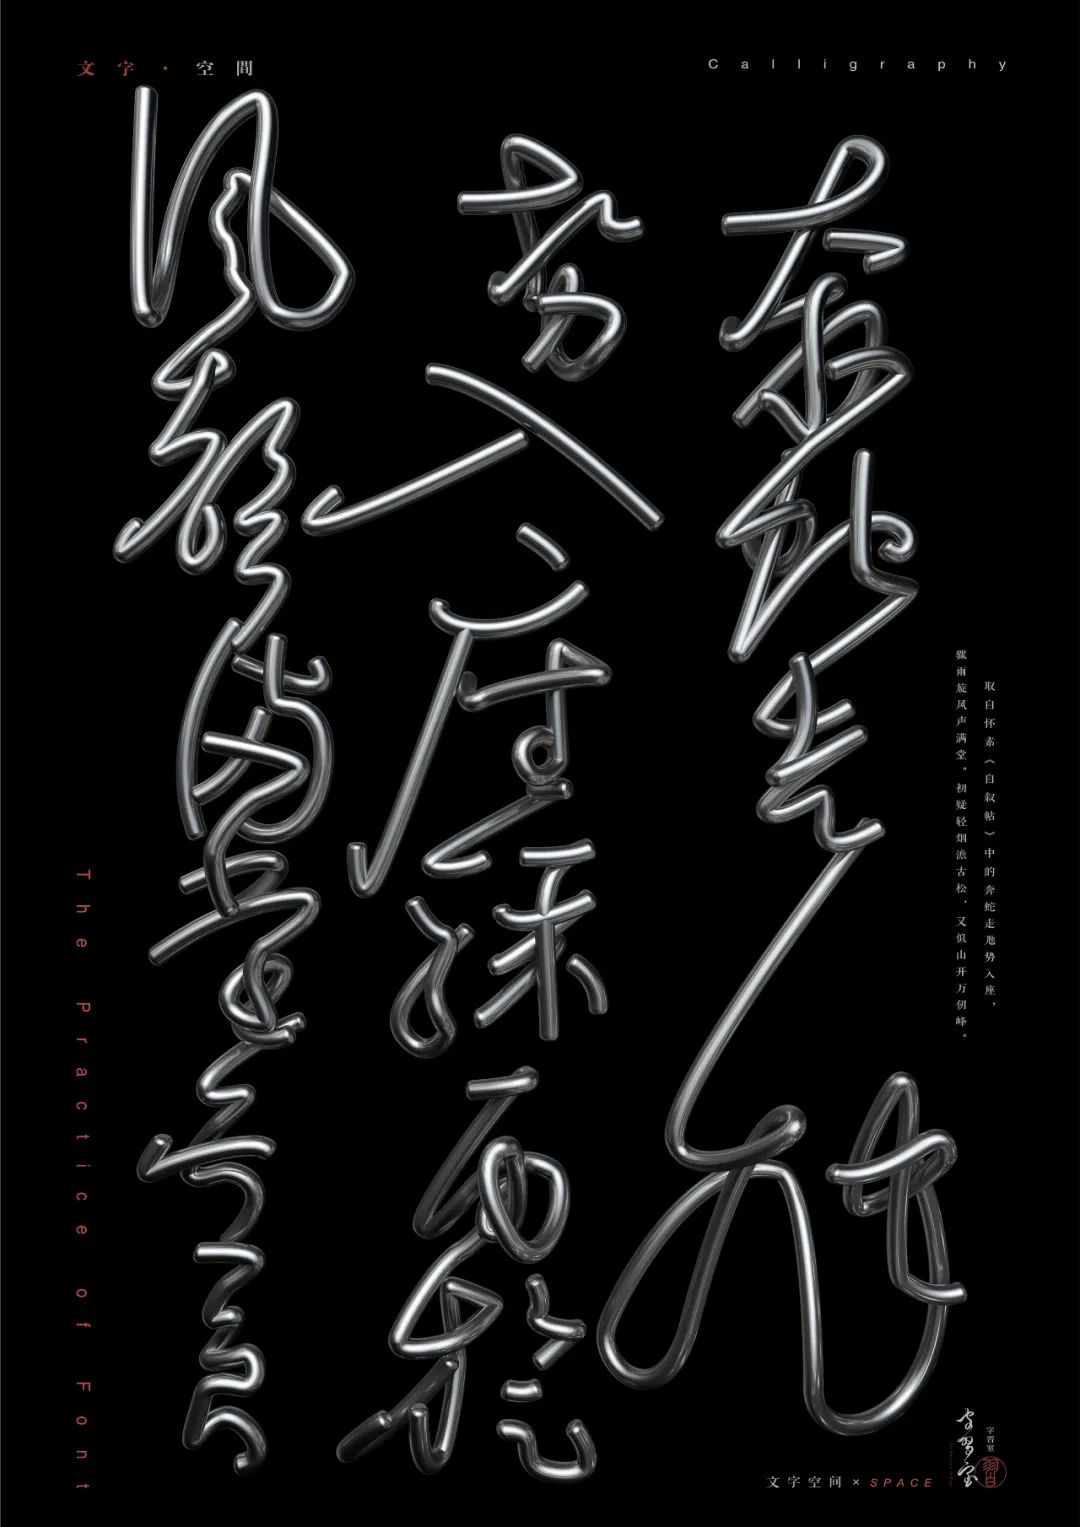 文字·空間
Calligraphy
奔蛇走虺
勢入座驟雨旋
風聲滿堂
取自怀素《自叙帖》中的奔蛇走虺势入座，
骤雨旋风声满堂。初疑轻烟澹古松，又似山开万仞峰。
The Practice of Font
字習室
字習室
習
文字空间×SPACE